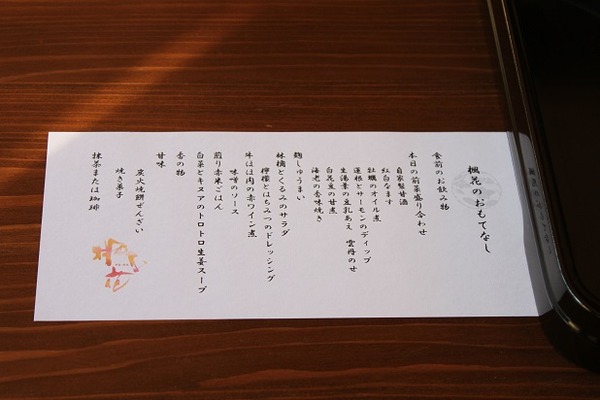 楓花のおもてなし
食前のお飲み物
本日の前菜盛り合わせ
自家製甘酒
紅白なます
牡蠣のオイル煮
蓮根とサーモンのディップ
生湯葉の豆乳あえ 雲丹のせ
白花豆の甘煮
海老の香味焼き
麹しゅうまい
林檎とくるみのサラダ
檸檬とはちみつのドレッシング
牛ほほ肉の赤ワイン煮
味噌のソース
煎り赤米ごはん
白菜とキヌアのトロトロ生姜スープ
香の物
甘味
炭火焼餅ぜんざい
焼き菓子
抹茶または珈琲